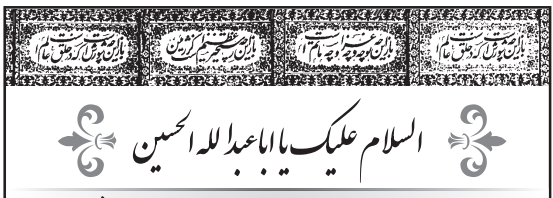 باز این چه شورش است که در خلق عالم است باز این چه نوحه و چه عزا و چه ماتم است باز این چه رستخیز عظیم است کز زمین باز این چه شورش است که در خلق عالم است
السلام علیک یا اباعبدا لله الحسین